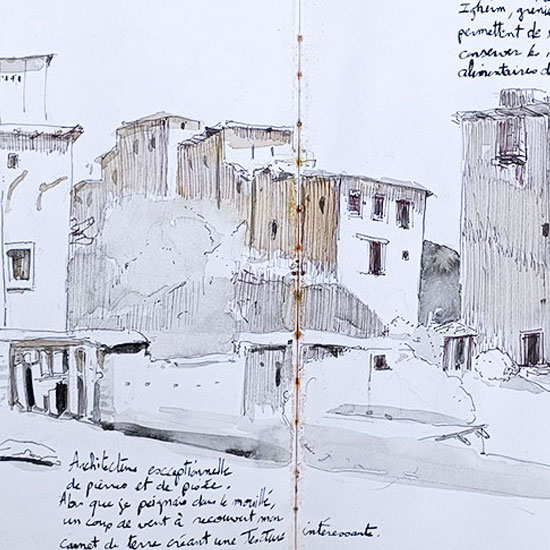 Igherm, grenie
permettent de s
conserver les
alimentaires d
Architecture exceptionnelle
de pierres et de pisée.
Alors que je peignais dans le mouillé,
un coup de vent à recouvert mon
carnet de terre créant une Texture intéressante.